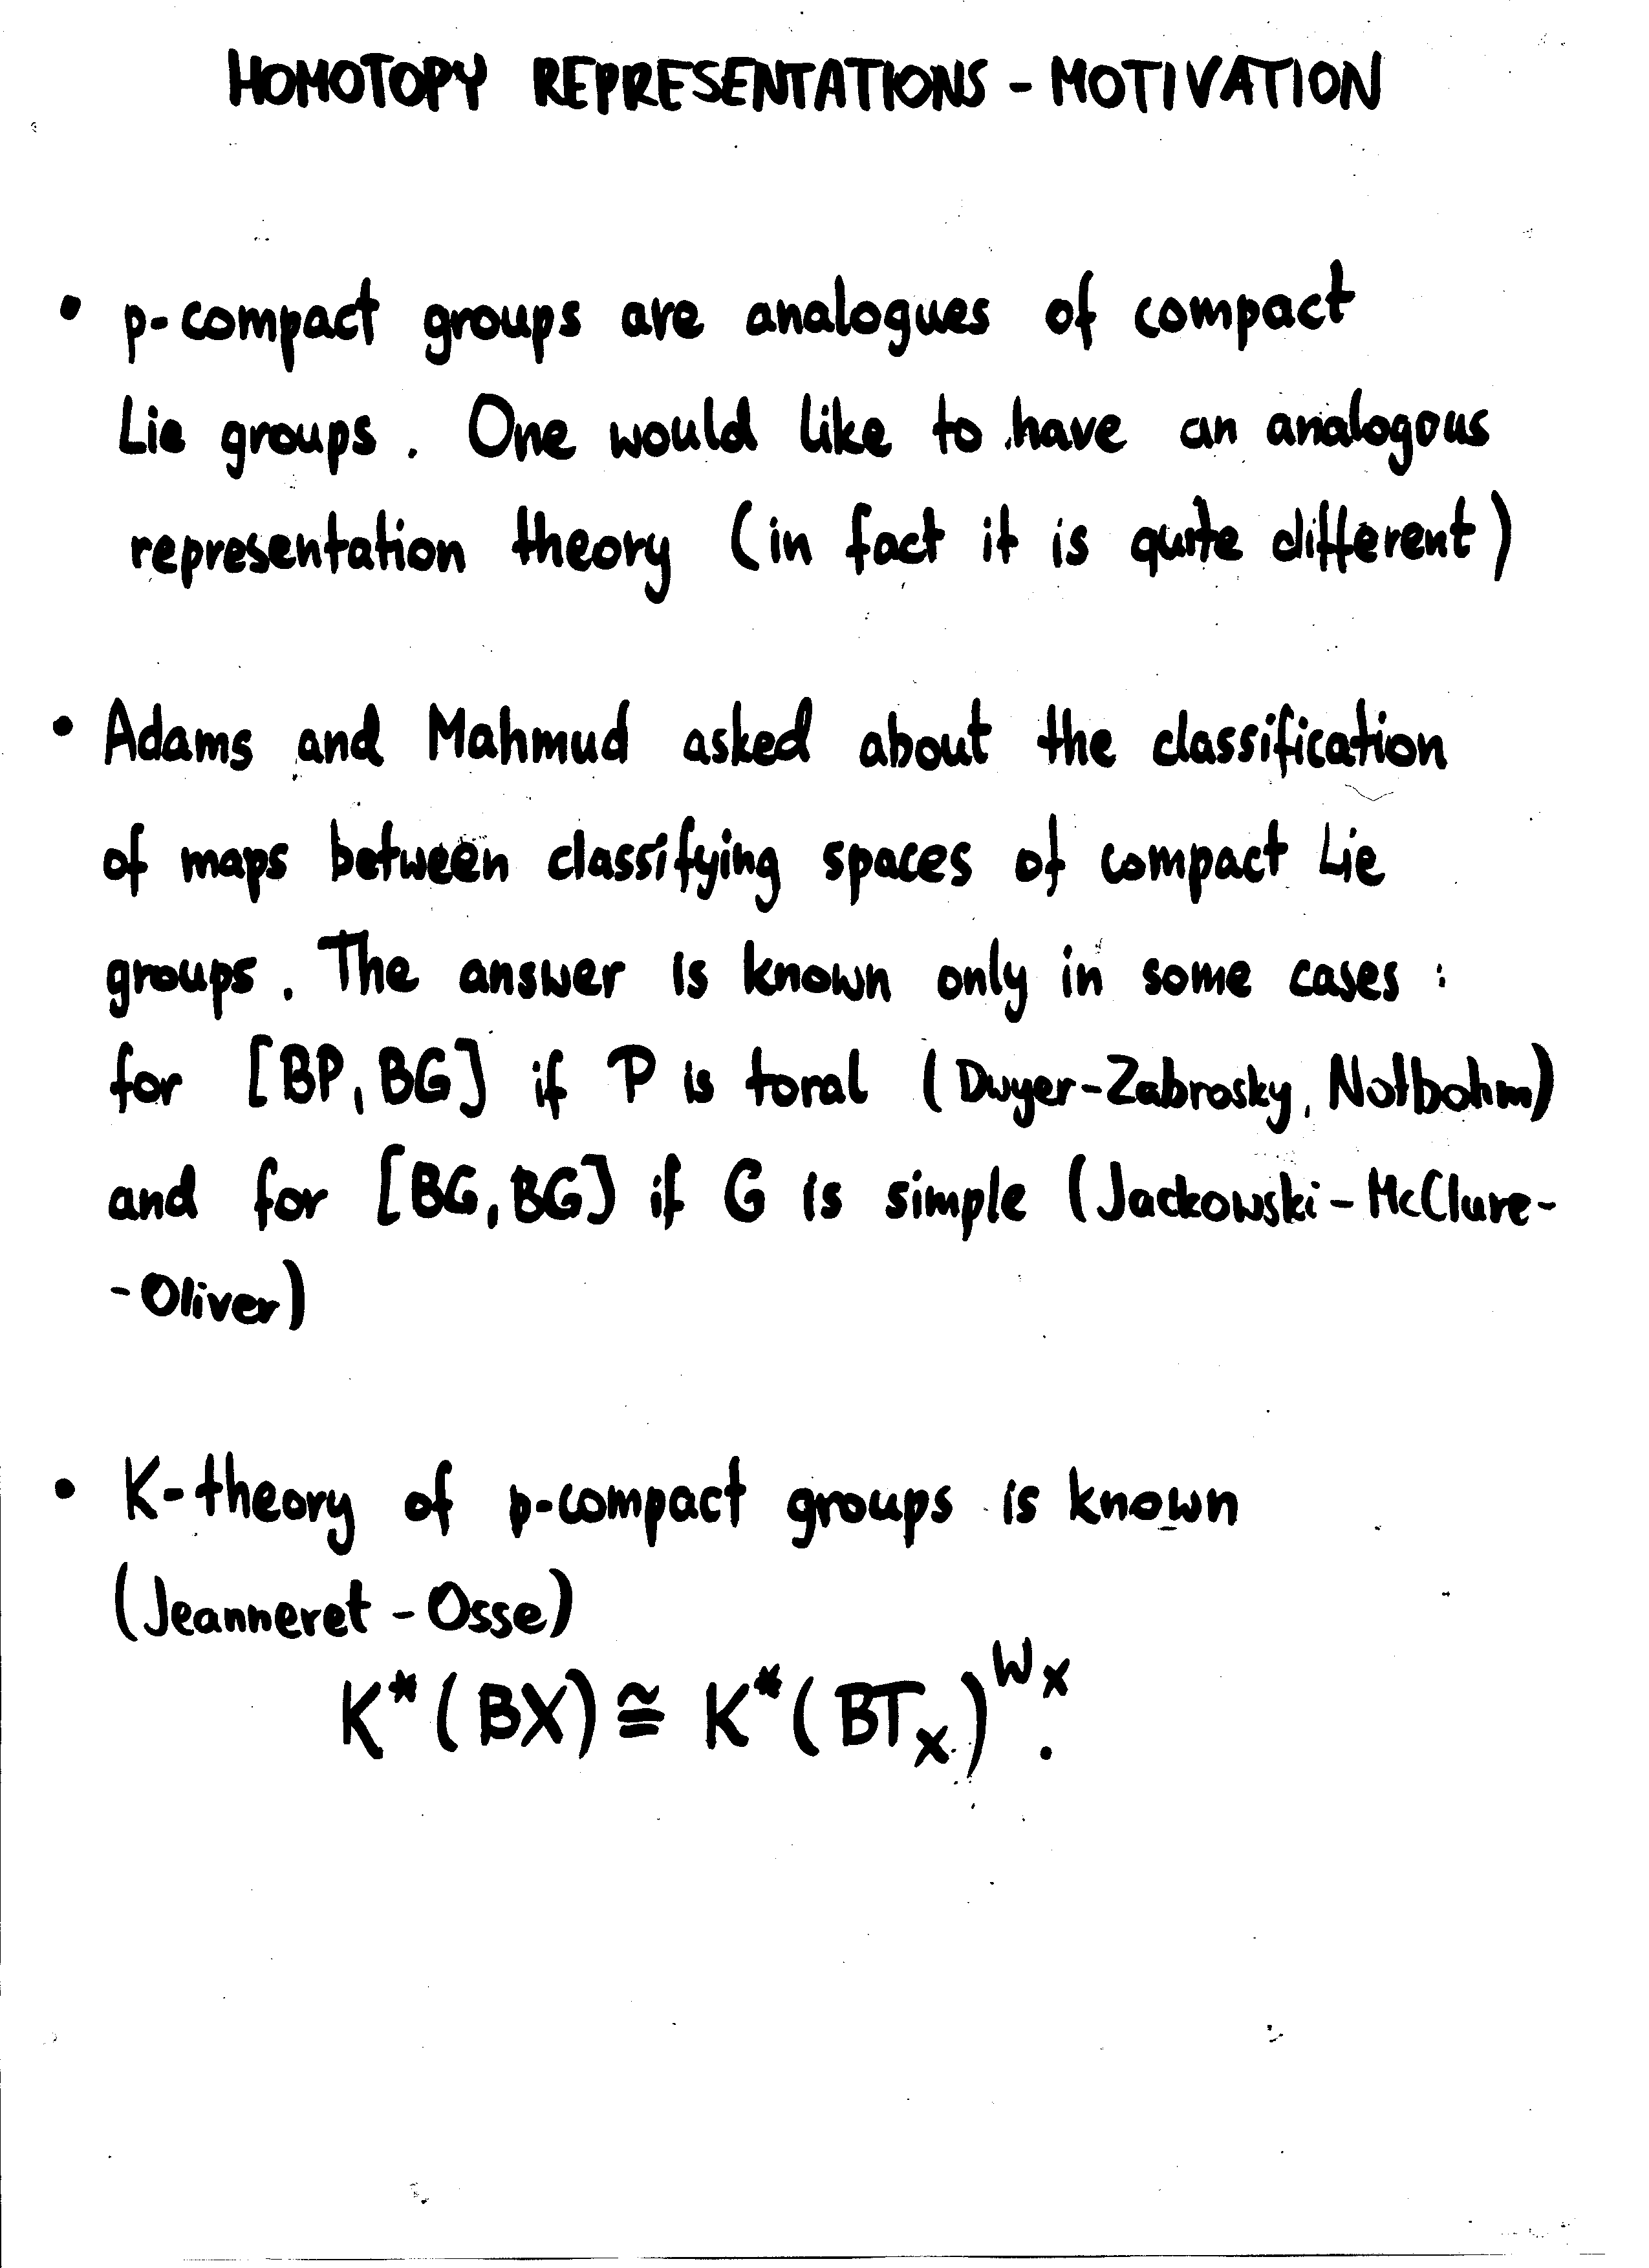 HOMOTOPY REPRESENTATIONS - MOTIVATION
• p-compact groups are analogues of compact
Lie groups. One would like to have an analogous
representation theory (in fact it is quite different)
• Adams and Mahmud asked about the classification
of maps between classifying spaces of compact Lie
groups. The answer is known only in some cases :
for [BP, BG] if P is toral (Dwyer-Zabrosky, Notbohm)
and for [BG, BG] if G is simple (Jackowski-McClure-
-Oliver)
• K-theory of p-compact groups is known
(Jeanneret-Osse)
K*(BX) ≅ K*(BT_X)^{W_X}.